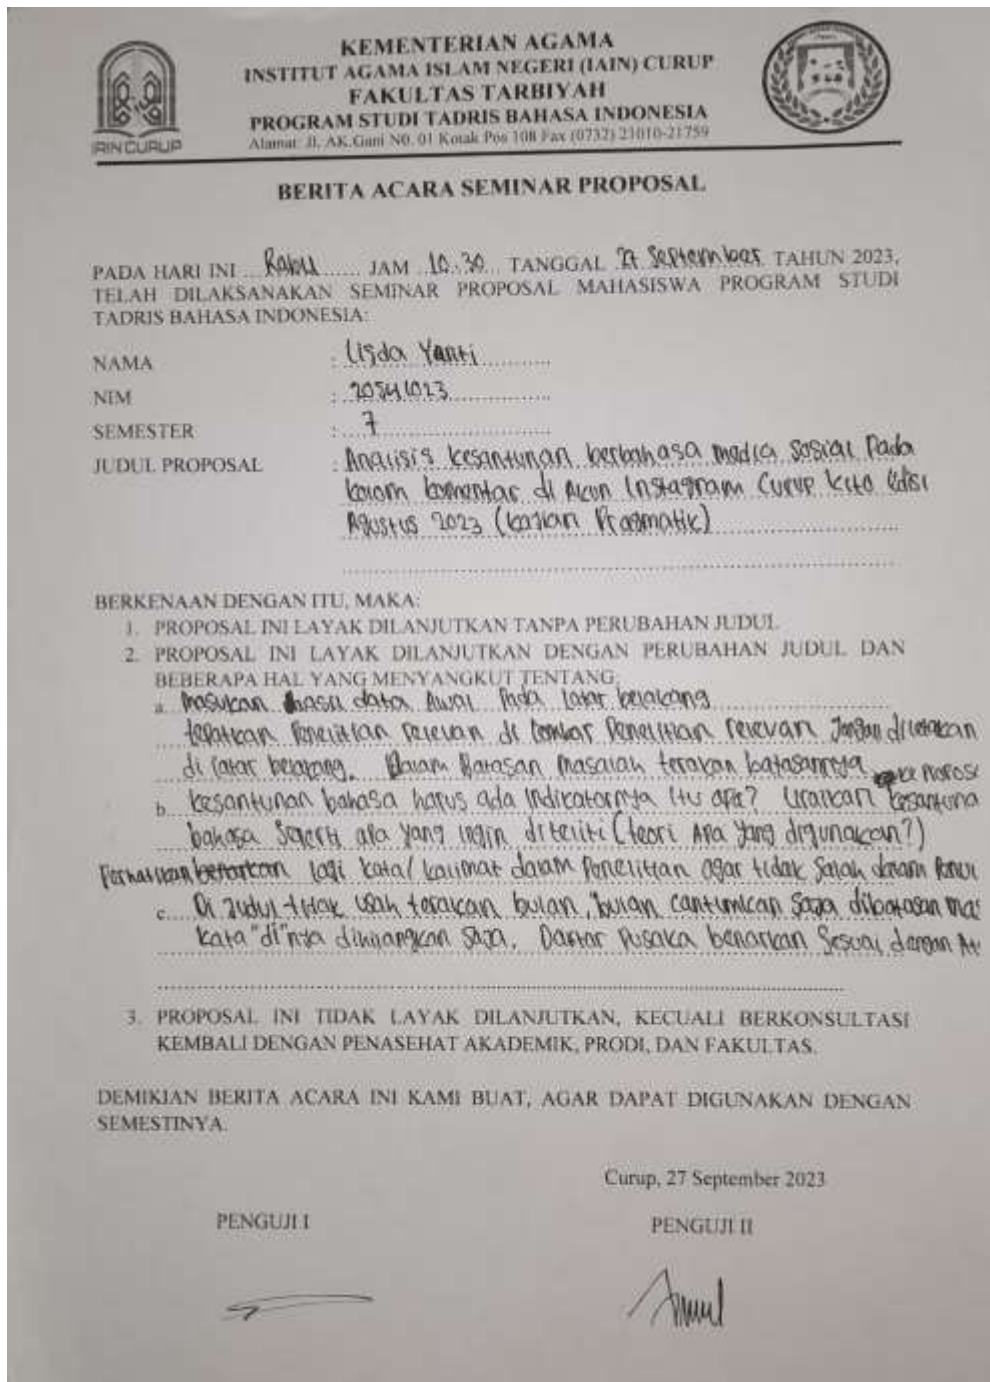 KEMENTERIAN AGAMA
INSTITUT AGAMA ISLAM NEGERI (IAIN) CURUP
FAKULTAS TARBIYAH
PROGRAM STUDI TADRIS BAHASA INDONESIA
Alamat: Jl. AK.Gani N0. 01 Kotak Pos 108 Fax (0732) 21010-21759
IAIN CURUP
BERITA ACARA SEMINAR PROPOSAL
PADA HARI INI Rabu JAM 10.30 TANGGAL 27 September TAHUN 2023,
TELAH DILAKSANAKAN SEMINAR PROPOSAL MAHASISWA PROGRAM STUDI
TADRIS BAHASA INDONESIA:
NAMA : Lisda Yanti
NIM : 20541023
SEMESTER : 7
JUDUL PROPOSAL : Analisis kesantunan berbahasa media sosial Pada
kolom komentar di Akun Instagram Curup kito Edisi
Agustus 2023 (kajian Pragmatik)
BERKENAAN DENGAN ITU, MAKA:
1. PROPOSAL INI LAYAK DILANJUTKAN TANPA PERUBAHAN JUDUL
2. PROPOSAL INI LAYAK DILANJUTKAN DENGAN PERUBAHAN JUDUL DAN
BEBERAPA HAL YANG MENYANGKUT TENTANG;
a. Masukan hasil data Awal Pada latar belakang
Penelitian relevan di Penelitian relevan Jangan diletakan
di latar belakang. Dalam Batasan Masalah terakan batasannya
b. kesantunan bahasa harus ada Indikatornya Itu apa? Uraikan
bahasa Seperti apa yang ingin diteliti (teori Apa yang digunakan?)
Perhatikan lagi kata/kalimat dalam Penelitian agar tidak Salah dalam
c. Di Judul tidak usah terakan bulan, bulan cantumkan saja dibatasan
kata "di"nya dihilangkan saja. Daftar Pusaka benarkan Sesuai dengan
3. PROPOSAL INI TIDAK LAYAK DILANJUTKAN, KECUALI BERKONSULTASI
KEMBALI DENGAN PENASEHAT AKADEMIK, PRODI, DAN FAKULTAS.
DEMIKIAN BERITA ACARA INI KAMI BUAT, AGAR DAPAT DIGUNAKAN DENGAN
SEMESTINYA.
Curup, 27 September 2023
PENGUJI I
PENGUJI II